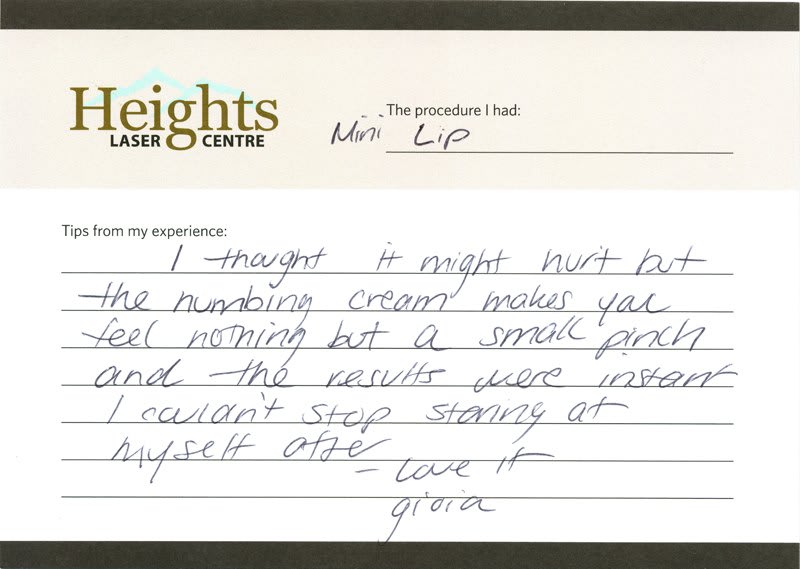 Heights
LASER CENTRE
The procedure I had:
Mini Lip
Tips from my experience:
I thought it might hurt but
the numbing cream makes you
feel nothing but a small pinch
and the results were instant
I couldn't stop staring at
myself after
- Love it
gioia